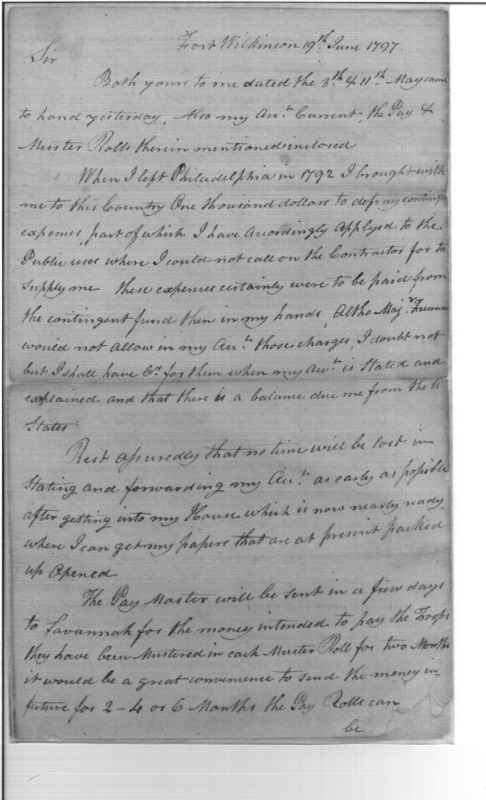 Fort Wilkinson 19th June 1797
Sir
Both yours to me dated the 8th & 11th May came
to hand yesterday, Also my Acc.ts Current, the Pay &
Muster Rolls therein mentioned inclosed
When I left Philadelphia in 1792 I brought with
me to this Country One thousand dollars to defray conting.t
expenses, part of which I have Accordingly Applyed to the
Public uses where I could not call on the Contractor for to
Supply me these expenses certainly were to be paid from
the contingent fund then in my hands, Altho Maj.r Freeman
would not allow in my Acc.ts those charges, I doubt not
but I shall have Cr for them when my Acc.t is Stated and
explained and that there is a balance due me from the U
States
Rest assuredly that no time will be lost in
Stating and forwarding my Acc.ts as early as possible
after getting into my House which is now nearly ready
where I can get my papers that are at present packed
up Opened
The Pay Master will be sent in a fiew days
to Savannah for the money intended to pay the Troops
they have been Mustered in each Muster Roll for two Months
it would be a great convenience to send the money in
future for 2 - 4 or 6 Months the Pay Rolls can
be